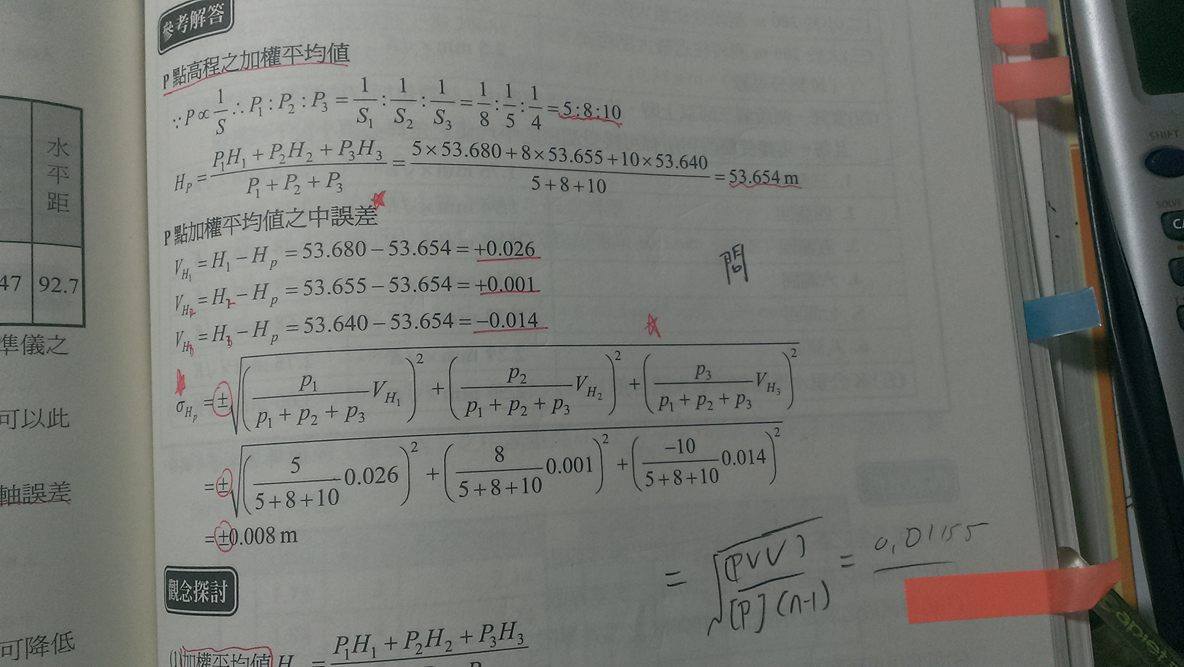 參考解答
P 點高程之加權平均值
∵P∝1/S ∴P₁:P₂:P₃=1/S₁:1/S₂:1/S₃=1/8:1/5:1/4=5:8:10
H_P=(P₁H₁+P₂H₂+P₃H₃)/(P₁+P₂+P₃)=(5×53.680+8×53.655+10×53.640)/(5+8+10)=53.654 m
P 點加權平均值之中誤差
V_H₁=H₁−H_p=53.680−53.654=+0.026
V_H₂=H₂−H_p=53.655−53.654=+0.001
V_H₃=H₃−H_p=53.640−53.654=−0.014
問
σ_Hp=±√((p₁/(p₁+p₂+p₃) V_H₁)²+(p₂/(p₁+p₂+p₃) V_H₂)²+(p₃/(p₁+p₂+p₃) V_H₃)²)
=±√((5/(5+8+10) 0.026)²+(8/(5+8+10) 0.001)²+(−10/(5+8+10) 0.014)²)
=±0.008 m
=√([PVV]/[P](n-1))=0.01155
觀念探討
(1)加權平均值H =P₁H₁+P₂H₂+P₃H₃
水平距
47
92.7
準儀之
可以此
軸誤差
可降低
SHIFT